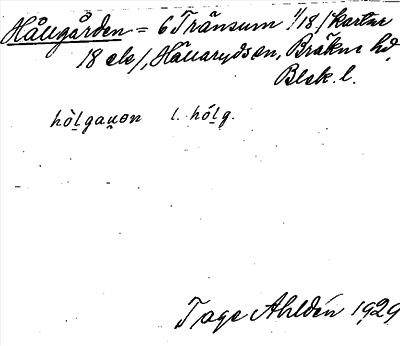 Hällgården = 6 Tränsum 1/18 /kartar
18 els/, Hällaryds sn, Bräkne hd,
Blek. l.
hòlgaṇən l. hólg.
Tage Ahldén 1929